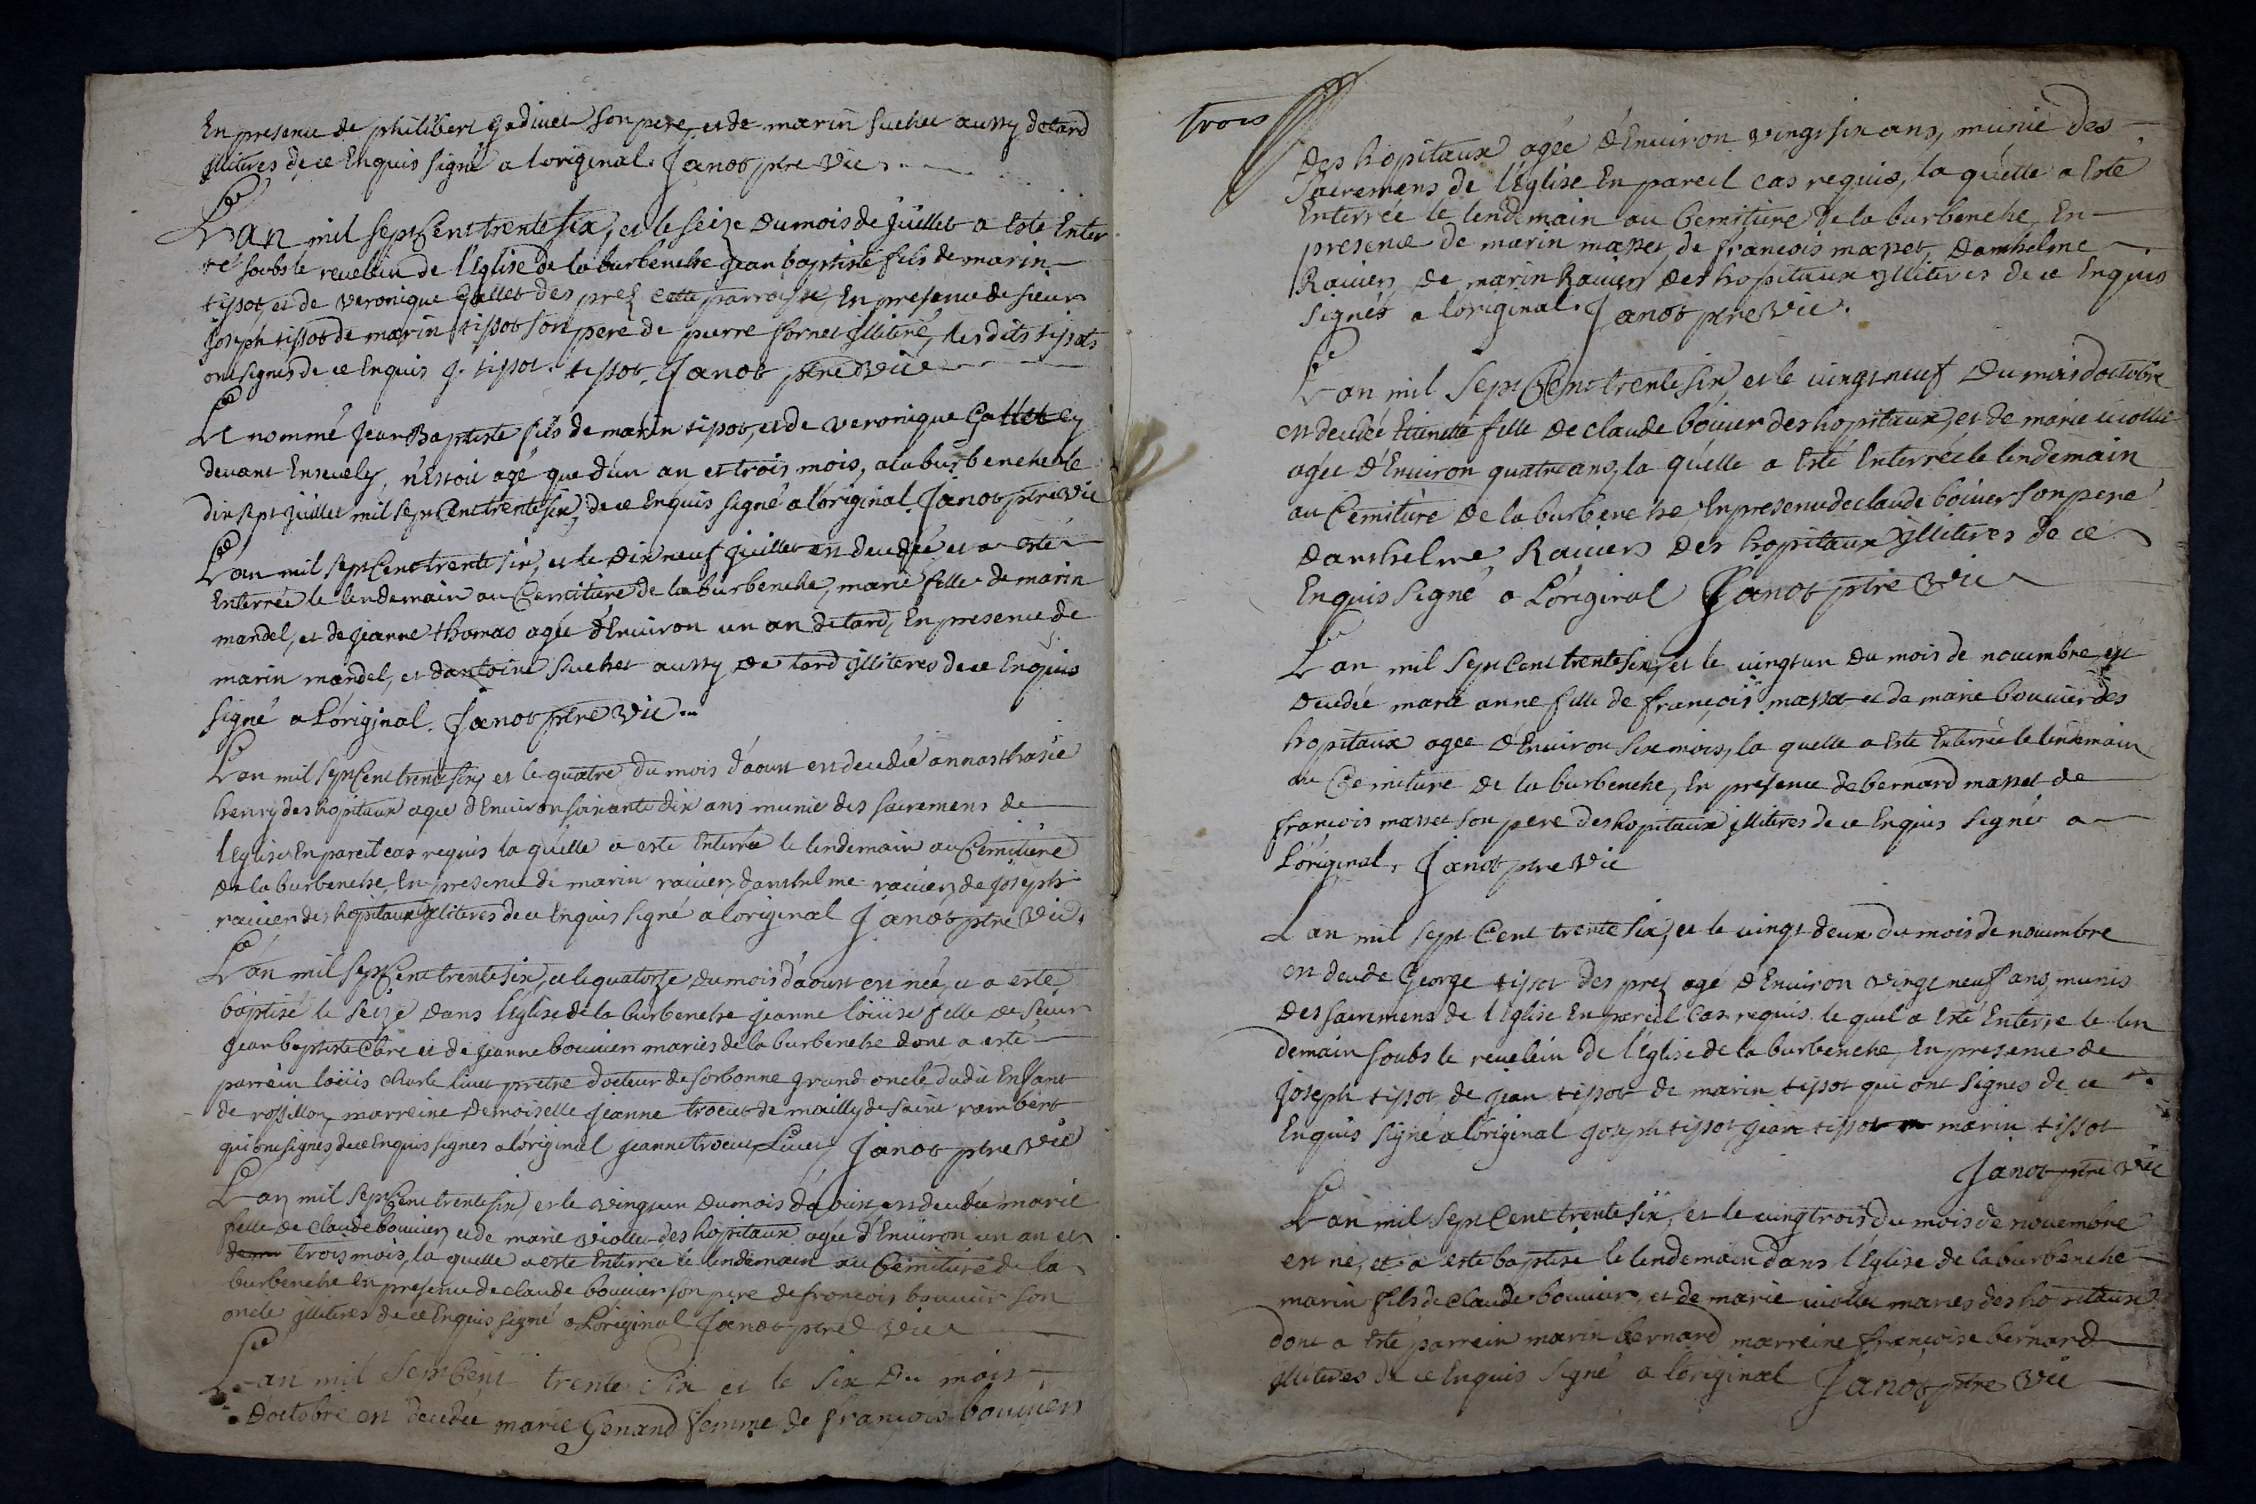 En presence de philibert gadivet son pere, et de marin suchet aussy detard
jlliteres de ce Enquis signé a loriginal. Janot ptre vic
L'an mil sept Cent trente six, et le seize du mois de juillet a Esté Enter
ré soubs le revelin de l'Eglise de la burbenche jean baptiste fils de marin
tissot, et de veronique Gallet des prez cette parroisse, En presence de sieur
joseph tissot de marin tissot son pere de pierre fornet jlliteré, lesdits tissots
ont signés de ce Enquis J. tissot. tissot. Janot ptre vic
Le nommé jean Baptiste fils de marin tissot, et de veronique Gallet cy
devant Ensevely, n'Estoit agé que d'un an et trois mois, a la burbenche le
dix sept juillet mil sept Cent trente six, de ce Enquis signé a l'original. Janot ptre vic
L'an mil sept Cent trente six, et le dix neuf juillet est decedée et a esté
Enterrée le lendemain au Cemitiere de la burbenche, marie fille de marin
mandel, et de jeanne thomas agée d'Environ un an detard, En presence de
marin mandel, et dantoine suchet aussy de tard jlliteres de ce Enquis
signé a L'original. Janot ptre vic
L'an mil sept Cent trente six, et le quatre du mois d'aoust est decedée annasthasie
henry des hopitaux agée d'Environ soixante dix ans munie des sacremens de
l'Eglise En pareil cas requis la quelle a esté Enterrée le lendemain au Cemitiere
de la burbenche, En presence de marin ravier, danthelme ravier, de joseph
ravier des hopitaux jlliteres de ce Enquis signé a loriginal Janot ptre vic.
L'an mil sept Cent trente six, et le quatorze du mois d'aoust est née, et a esté
baptisé le seize dans l'Eglise de la burbenche jeanne loüise fille de sieur
jean baptiste Clare et de jeanne bouvier mariés de la burbenche dont a esté
parrein loüis charle livet pretre docteur de sorbonne grand oncle dudit Enfant
de rossillon, marreine demoiselle jeanne trocut de mailly de saint rambert
qui ont signés de ce Enquis signés a l'original jeanne trocut Livet Janot ptre vic
L'an mil sept Cent trente six, et le vingt un du mois d'aoust, est decedée marie
fille de Claude bouvier, et de marie viollet des hopitaux agée d'Environ un an et
trois mois, la quelle a esté Enterrée le lendemain au Cemitiere de la
burbenche En presence de claude bouvier son pere de francois bouvier son
oncle jlliteres de ce Enquis signé a L'original Janot ptre vic
L'an mil sept Cent trente six et le six du mois
doctobre est decedée marie Genand femme de francois bouvier
trois
des hopitaux agée d'Environ vingt six ans, munie des
sacremens de l'Eglise En pareil cas requis, la quelle a Esté
Enterrée le lendemain au Cemitiere de la burbenche, En
presence de marin masset, de francois masset, danthelme
Ravier, de marin Ravier des hopitaux jlliteres de ce Enquis
signés a loriginal. Janot ptre vic.
L'an mil sept Cent trente six, et le vingt neuf du mois doctobre
est decedée Etienette fille de claude bouvier des hopitaux, et de marie viollet
agée d'Environ quatre ans, la quelle a Esté Enterrée le lendemain
au Cemitiere de la burbenche, En presence de claude bouvier son pere
danthelme, Ravier des hopitaux jlliteres de ce
Enquis signé a L'original Janot ptre vic
L'an mil sept Cent trente six, et le vingt un du mois de novembre est
decedée marie anne fille de françois masset et de marie bouvier des
hopitaux agee d'Environ six mois, la quelle a Esté Enterrée le lendemain
au Cemitiere de la burbenche, En presence de bernard masset de
francois masset son pere des hopitaux jlliteres de ce Enquis signés a
L'original, Janot ptre vic
L'an mil sept Cent trente six, et le vingt deux du mois de novembre
est decede George tissot des prez agé d'Environ vingt neuf ans, munis
des sacremens de l'Eglise En pareil Cas requis. le quel a Esté Enterre le len
demain soubs le revelin de l'Eglise de la burbenche, En presence de
joseph tissot de jean tissot de marin tissot qui ont signes de ce
Enquis signé a l'original joseph tissot jean tissot marin tissot
Janot ptre vic
L'an mil sept Cent trente six, et le vingtrois du mois de novembre
est né, et a esté baptisé le lendemain dans l'Eglise de la burbenche
marin fils de claude bouvier, et de marie viollet maries des hopitaux
dont a Esté parrein marin bernard marreine francoise bernard
jlliteres de ce Enquis signé a l'original Janot ptre vic